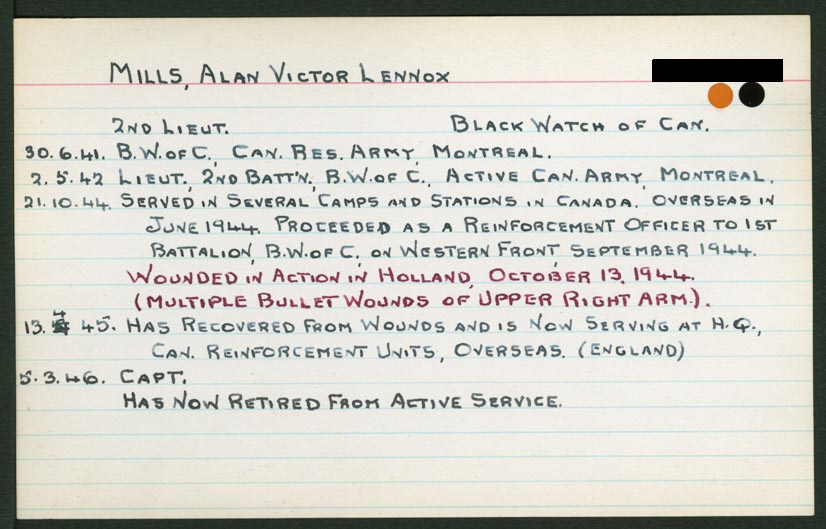 MILLS, ALAN VICTOR LENNOX
2ND LIEUT. BLACK WATCH OF CAN.
30.6.41. B.W. OF C., CAN. RES. ARMY, MONTREAL.
2.5.42 LIEUT., 2ND BATT'N., B.W. OF C., ACTIVE CAN. ARMY, MONTREAL.
21.10.44. SERVED IN SEVERAL CAMPS AND STATIONS IN CANADA. OVERSEAS IN
JUNE 1944. PROCEEDED AS A REINFORCEMENT OFFICER TO 1ST
BATTALION, B.W. OF C., ON WESTERN FRONT, SEPTEMBER 1944.
WOUNDED IN ACTION IN HOLLAND, OCTOBER 13, 1944.
(MULTIPLE BULLET WOUNDS OF UPPER RIGHT ARM.).
13.4.45. HAS RECOVERED FROM WOUNDS AND IS NOW SERVING AT H.Q.,
CAN. REINFORCEMENT UNITS, OVERSEAS. (ENGLAND)
5.3.46. CAPT.
HAS NOW RETIRED FROM ACTIVE SERVICE.